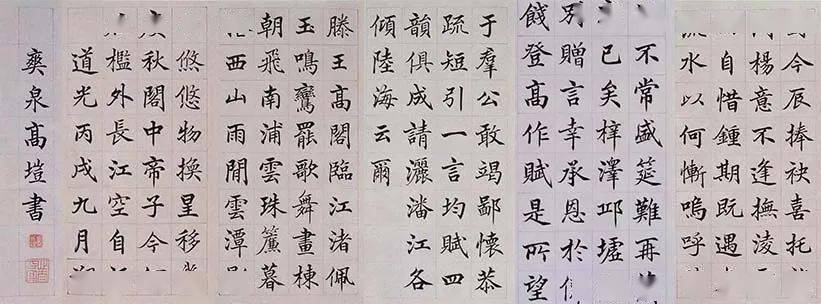 今辰捧袂喜托
楊意不逢撫淩
自惜鍾期既遇
流水以何慚嗚呼
不常盛筵難再
已矣梓澤邱墟
別贈言幸承恩於
餞登高作賦是所望
于羣公敢竭鄙懷恭
疏短引一言均賦四
韻俱成請灑潘江各
傾陸海云爾
滕王高閣臨江渚佩
玉鳴鸞罷歌舞畫棟
朝飛南浦雲珠簾暮
西山雨閒雲潭
悠悠物換星移
秋閣中帝子今
檻外長江空自
道光丙戌九月
奭泉高塏書